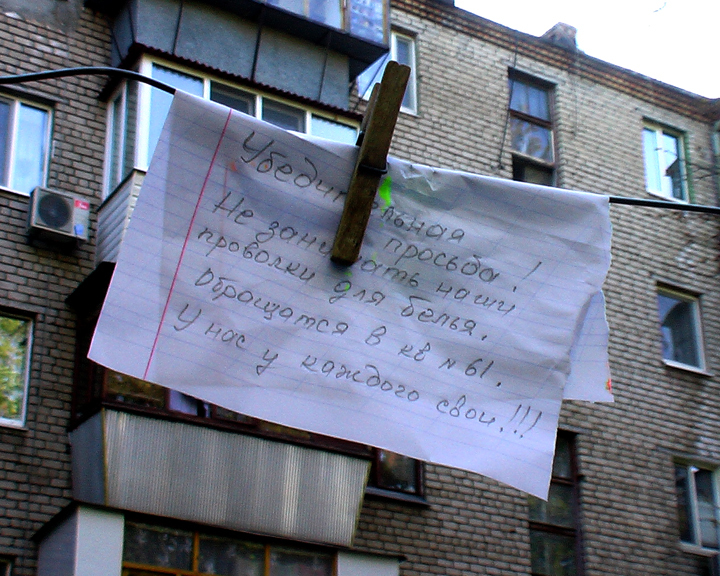 Убедительная
просьба!
Не занимать наши
проволки для белья.
Обращатся в кв №61.
У нас у каждого свои!!!